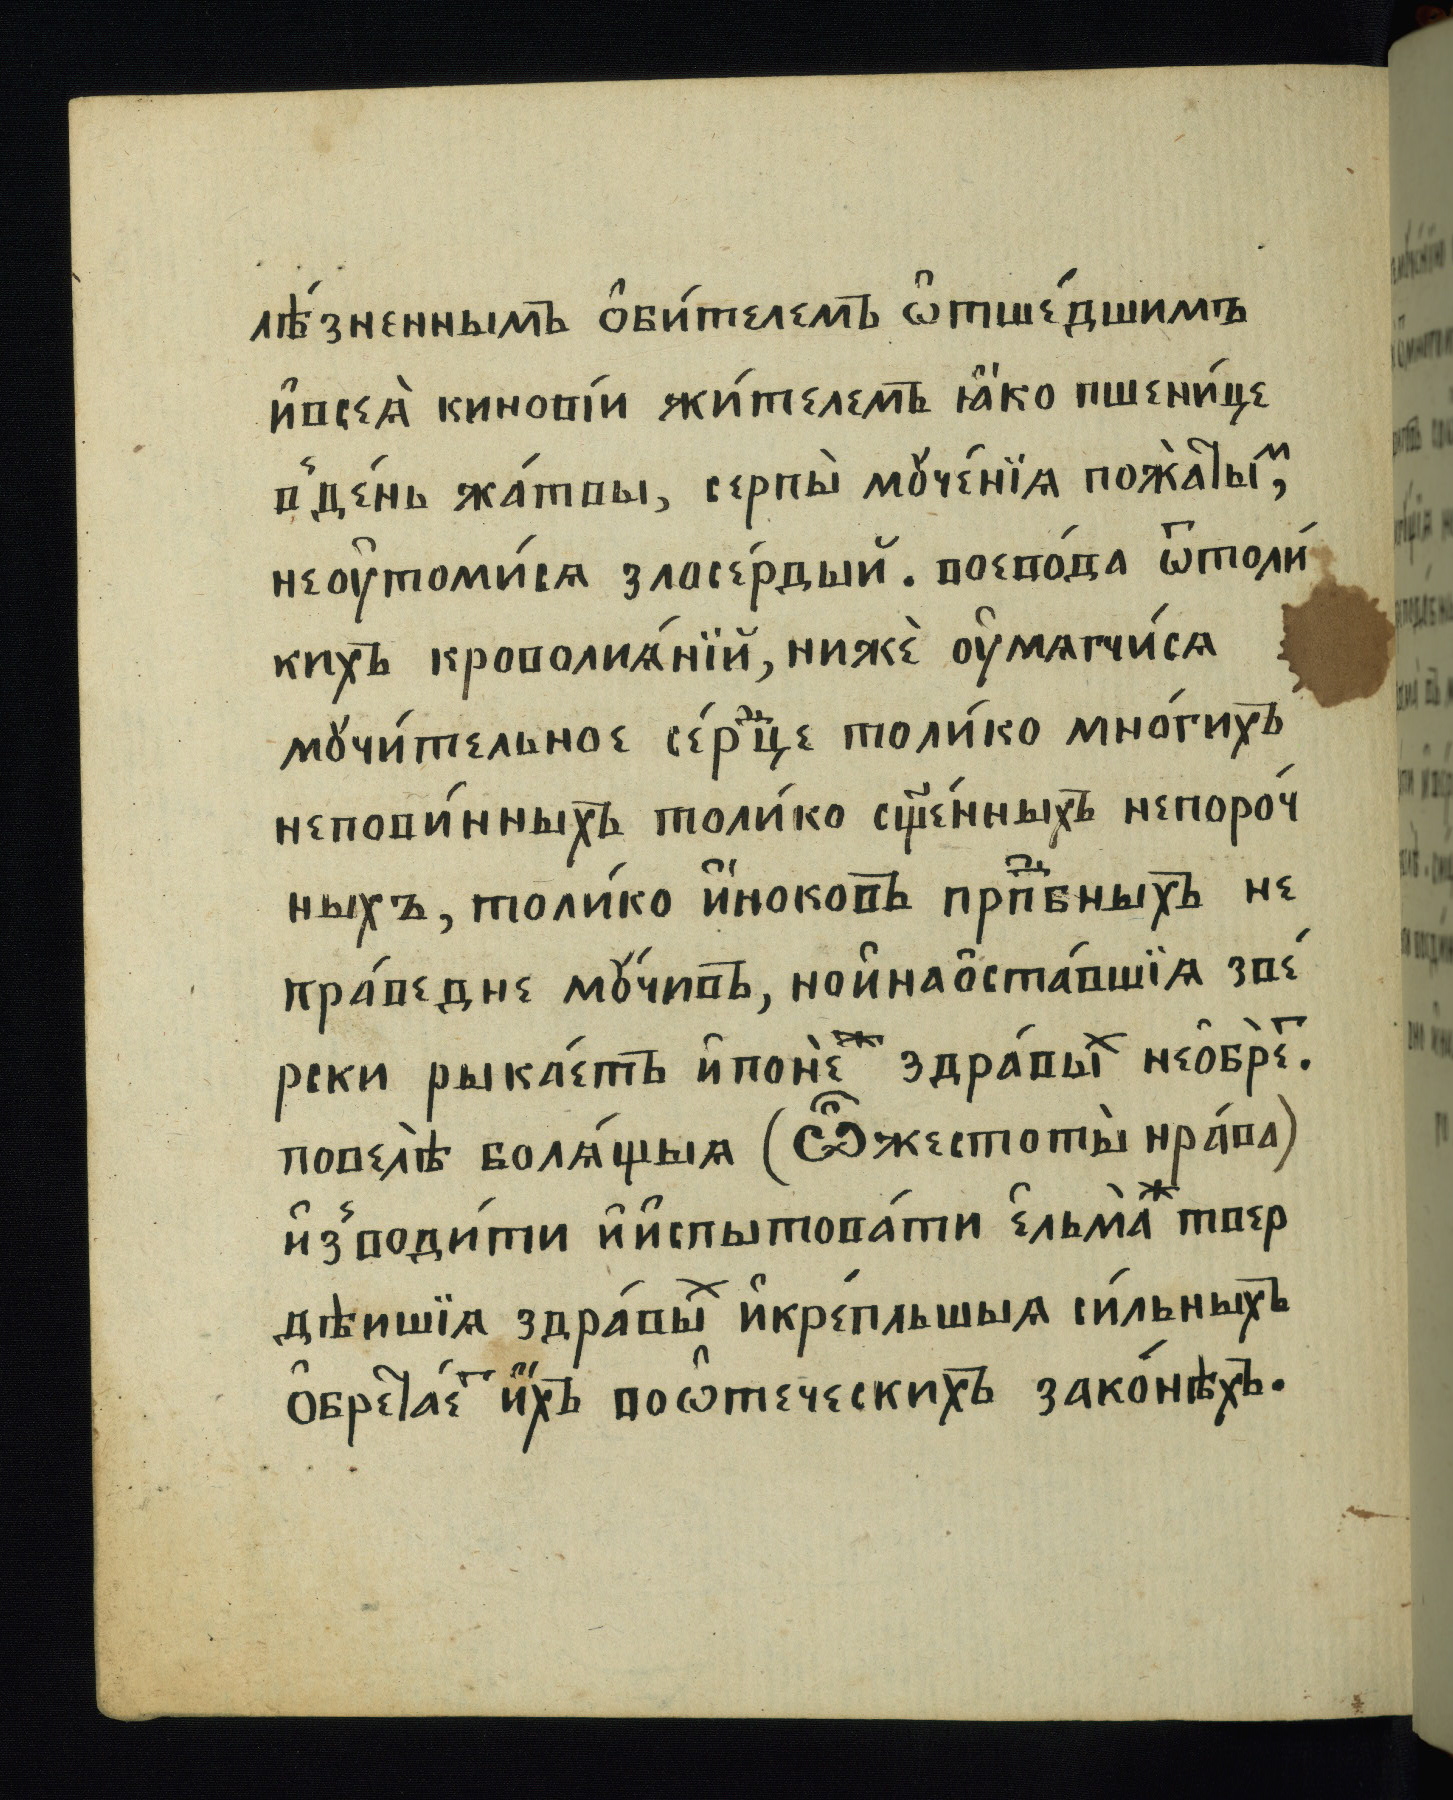 лѣ́зненнымъ ѻ҆би́телемъ ѿтше́дшимъ
и҆всеѧ̀ кинові́и жи́телемъ ꙗ҆́ко пшени́це
в̾де́нь жа́твы, серпы̀ мꙋче́нїѧ пожа̀ты́ⷨ,
неꙋ҆томи́сѧ злосе́рдый. воево́да ѿтоли́
кихъ кроволиѧ́нїй, нижѐ ᲂу҆мѧгчи́сѧ
мꙋчи́тельное се́рⷣце толи́ко мно́гихъ
непови́нныхъ толи́ко сщ҃е́нныхъ непоро́ч
ныхъ, толи́ко и҆́нокѡвъ прпⷣбныхъ не
пра́ведне мꙋ́чивъ, нои҆наѻ҆ста́вшїѧ зве́
рски рыка́етъ и҆понѐⷤ здра́выⷯ неѻ҆брѐⷮ.
повелѣ̀ болѧ́щыѧ (Ѿжестоты̀ нра́ва)
и҆з̾води́ти и҆и҆спытова́ти е҆льма̀ⷤ твер
дѣишїѧ здра́выⷯ и҆крѣ́пльшыѧ си́льныхъ
ѻ҆брета́еⷮ и҆́хъ воѡ҆теческихъ зако́нѣхъ.